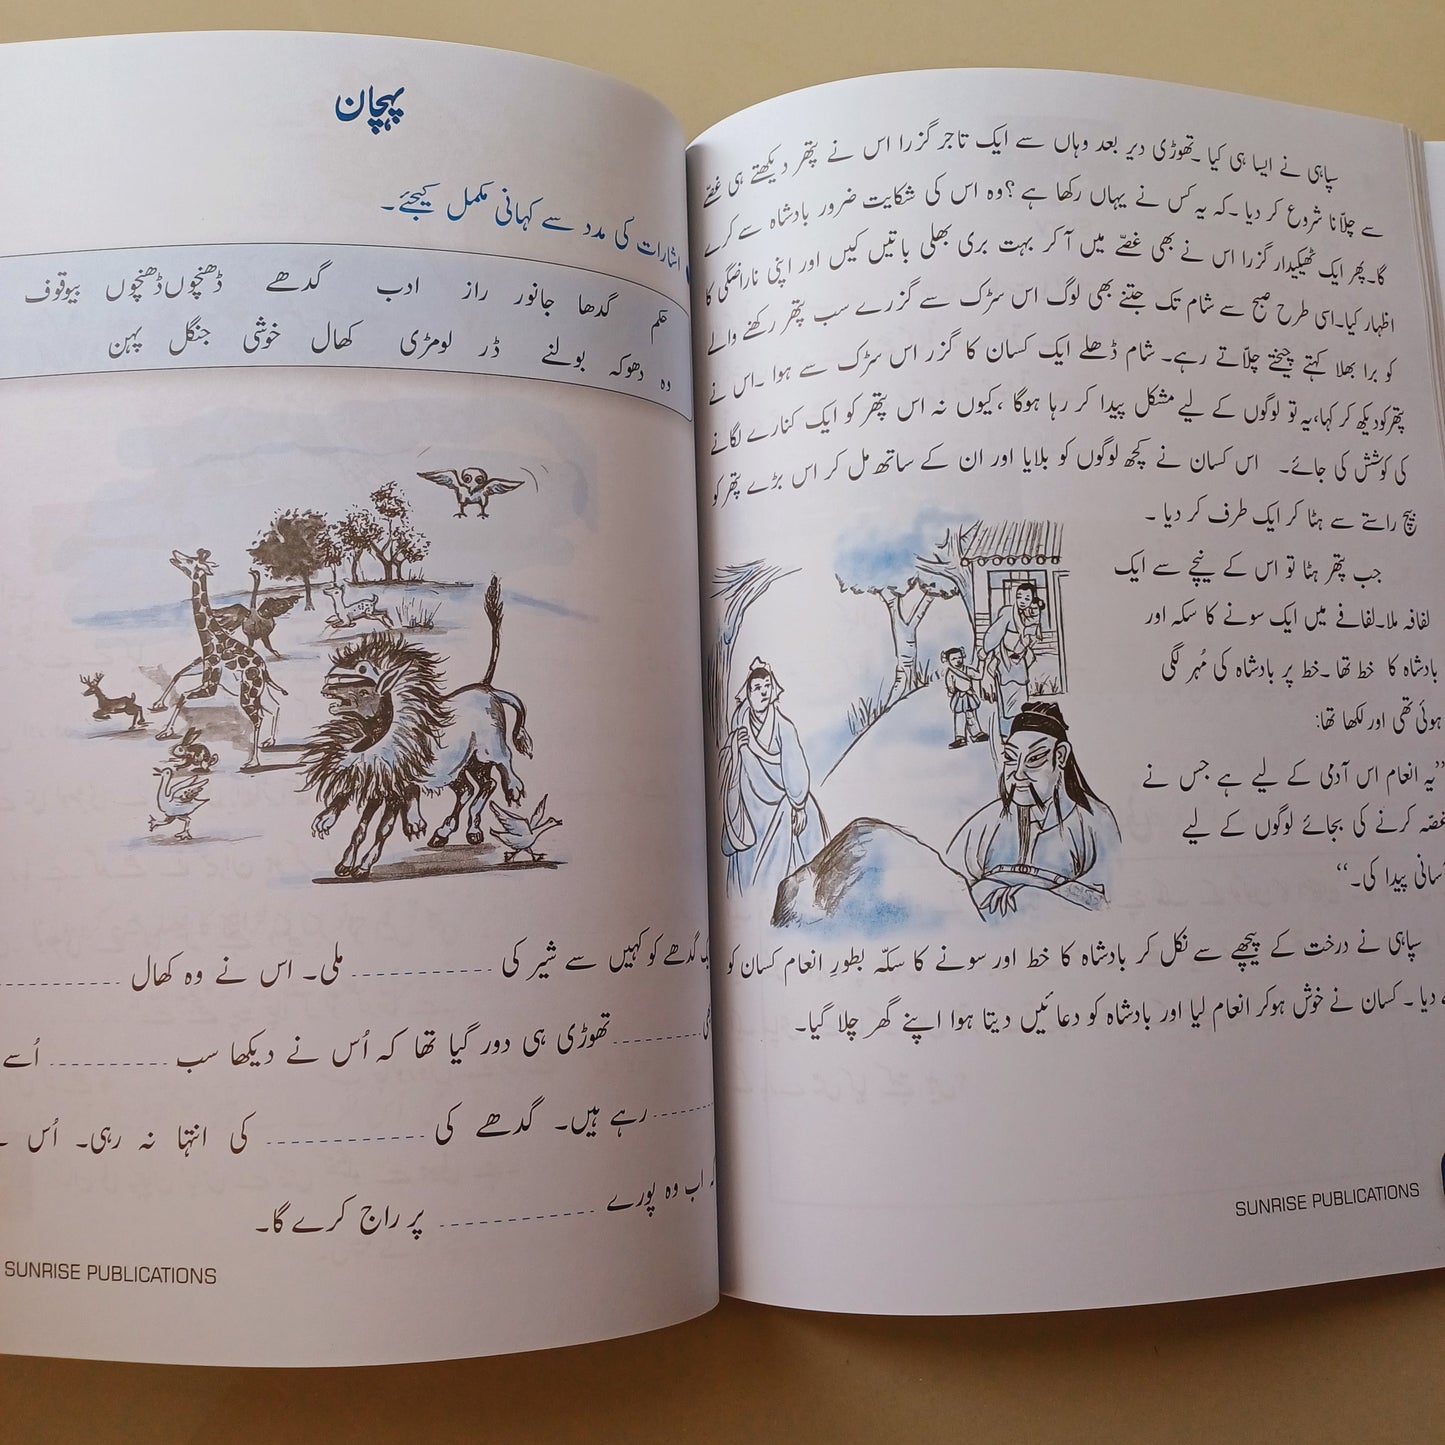 سپاہی نے ایسا ہی کیا ۔تھوڑی دیر بعد وہاں سے ایک تاجر گزرا اس نے پتھر دیکھتے ہی غصّے
سے چلاّنا شروع کر دیا ۔کہ یہ کس نے یہاں رکھا ہے ؟وہ اس کی شکایت ضرور بادشاہ سے کرے
گا۔پھر ایک ٹھیکیدار گزرا اس نے بھی غصّے میں آ کر بہت بری بھلی باتیں کیں اور اپنی ناراضگی کا
اظہار کیا۔اسی طرح صبح سے شام تک جتنے بھی لوگ اس سڑک سے گزرے سب پتھر رکھنے والے
کو برا بھلا کہتے چیختے چلاّتے رہے۔ شام ڈھلے ایک کسان کا گزر اس سڑک سے ہوا ۔اس نے
پتھر کو دیکھ کر کہا،یہ تو لوگوں کے لیے مشکل پیدا کر رہا ہوگا ،کیوں نہ اس پتھر کو ایک کنارے لگانے
کی کوشش کی جائے۔ اس کسان نے کچھ لوگوں کو بلایا اور ان کے ساتھ مل کر اس بڑے پتھر کو
بیچ راستے سے ہٹا کر ایک طرف کر دیا ۔
جب پتھر ہٹا تو اس کے نیچے سے ایک
لفافہ ملا۔لفافے میں ایک سونے کا سکہ اور
بادشاہ کا خط تھا ۔خط پر بادشاہ کی مُہر لگی
ہوئی تھی اور لکھا تھا:
”یہ انعام اس آدمی کے لیے ہے جس نے
غصّہ کرنے کی بجائے لوگوں کے لیے
سانی پیدا کی۔“
سپاہی نے درخت کے پیچھے سے نکل کر بادشاہ کا خط اور سونے کا سکّہ بطورِ انعام کسان کو
دیا ۔ کسان نے خوش ہوکر انعام لیا اور بادشاہ کو دعائیں دیتا ہوا اپنے گھر چلا گیا۔
SUNRISE PUBLICATIONS
پہچان
اشارات کی مدد سے کہانی مکمل کیجئے۔
حکم گدھا جانور راز ادب گدھے ڈھنچوں ڈھنچوں بیوقوف
وہ دھوکہ بولنے ڈر لومڑی کھال خوشی جنگل پہن
گدھے کو کہیں سے شیر کی ------------ ملی۔ اس نے وہ کھال ------------
------------ تھوڑی ہی دور گیا تھا کہ اُس نے دیکھا سب ------------ اُسے
------------ رہے ہیں۔ گدھے کی ------------ کی انتہا نہ رہی۔ اُس
اب وہ پورے ------------ پر راج کرے گا۔
SUNRISE PUBLICATIONS